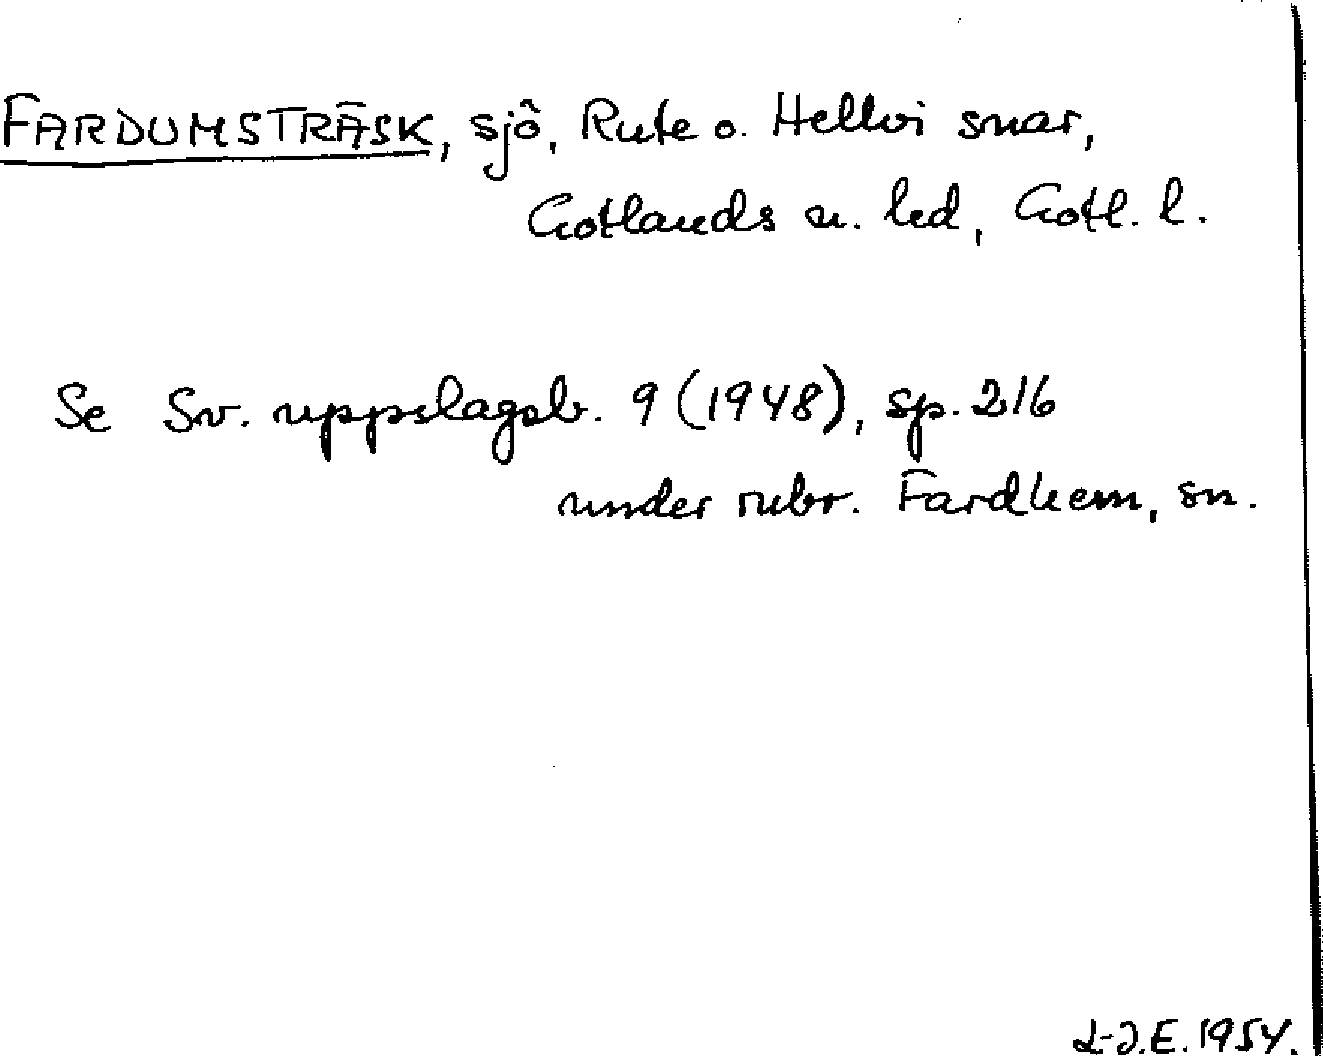 FARDUMSTRÄSK, sjö, Rute o. Hellvi snar,
Gotlands n. hd, Gotl. l.
Se Sv. uppslagsb. 9 (1948), sp. 216
under rubr. Fardhem, sn.
L-J.E. 1954.